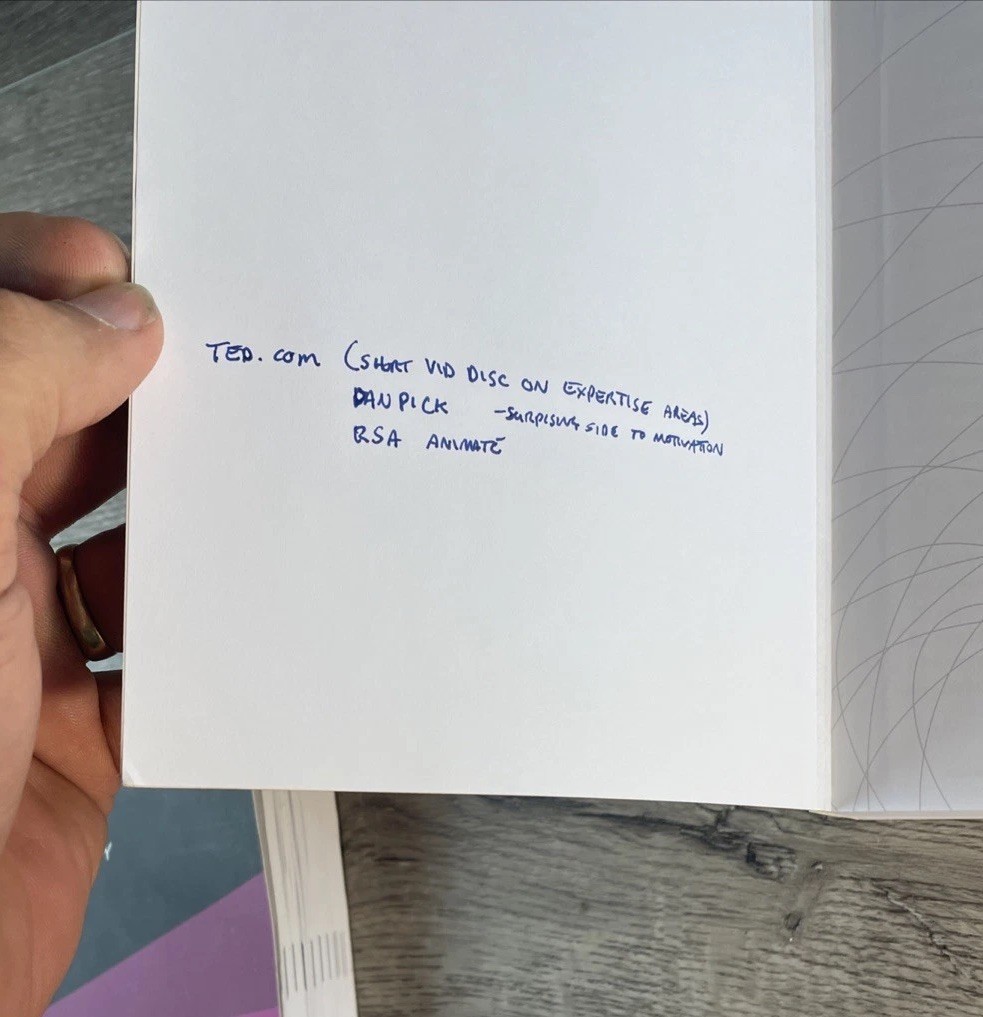 TED. com (SHORT VID DISC ON EXPERTISE AREAS)
DAN PICK -SURPISING SIDE TO MOTIVATION
RSA ANIMATE
Y